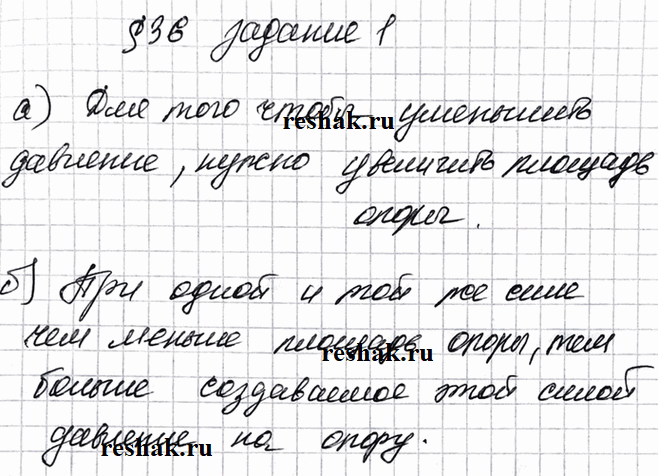 §36 задание 1
а) Для того чтобы уменьшить
давление, нужно увеличить площадь
опоры.
б) При одной и той же силе
чем меньше площадь опоры, тем
больше создаваемое этой силой
давление на опору.
reshak.ru
reshak.ru
reshak.ru